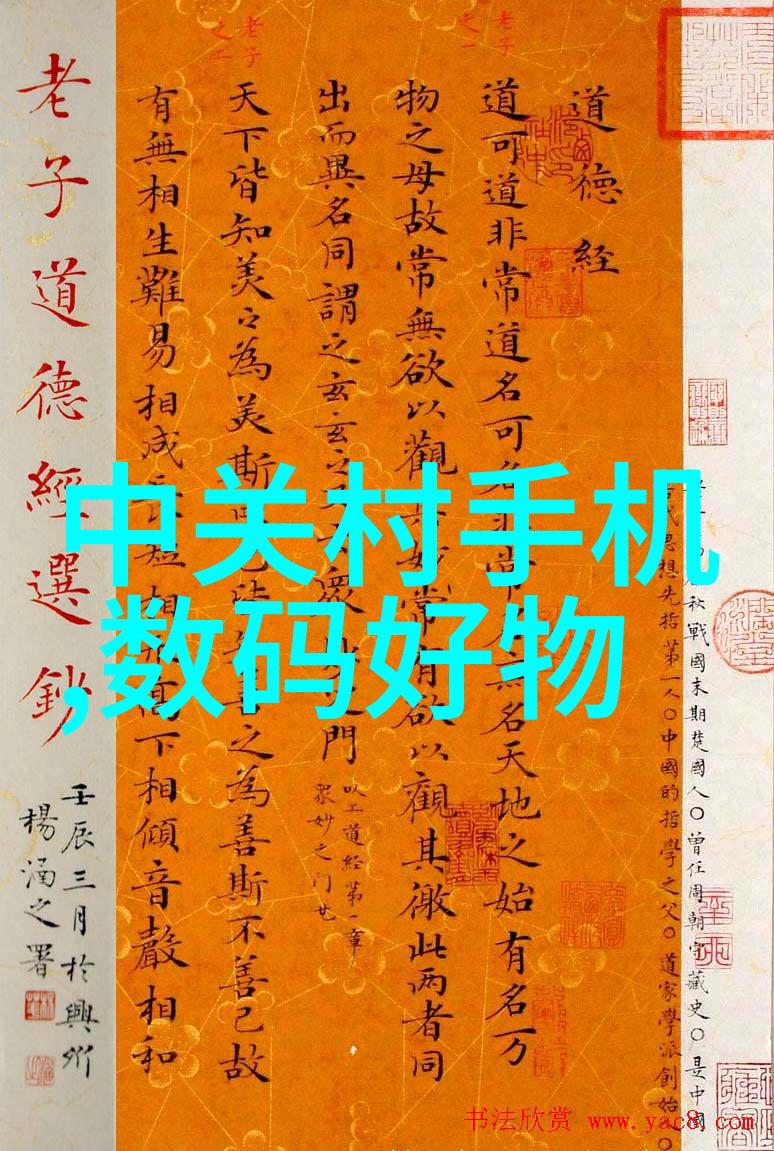 中关村手机
,数码好物
老子
之一
老子
之二
秋戰國末期楚國人〇曾任周朝守藏史〇是中國
古代思想先指第一人〇中國的哲學之父〇道家學派創始〇
道德经
道可道非常道名可名非常名无名天地之始有名万
物之母故常無欲以觀其妙常有欲以觀其徼此两者同
出而異名同謂之玄玄之又玄眾妙之門
以上道经第一章
眾妙之门
天下皆知美之為美斯惡已皆知善之為善斯不善已故
有無相生難易相成長短相形高下相傾音聲相和
老子道德經選鈔
壬辰三月於興州
楊涵之署
书法欣赏 www.yac8.com